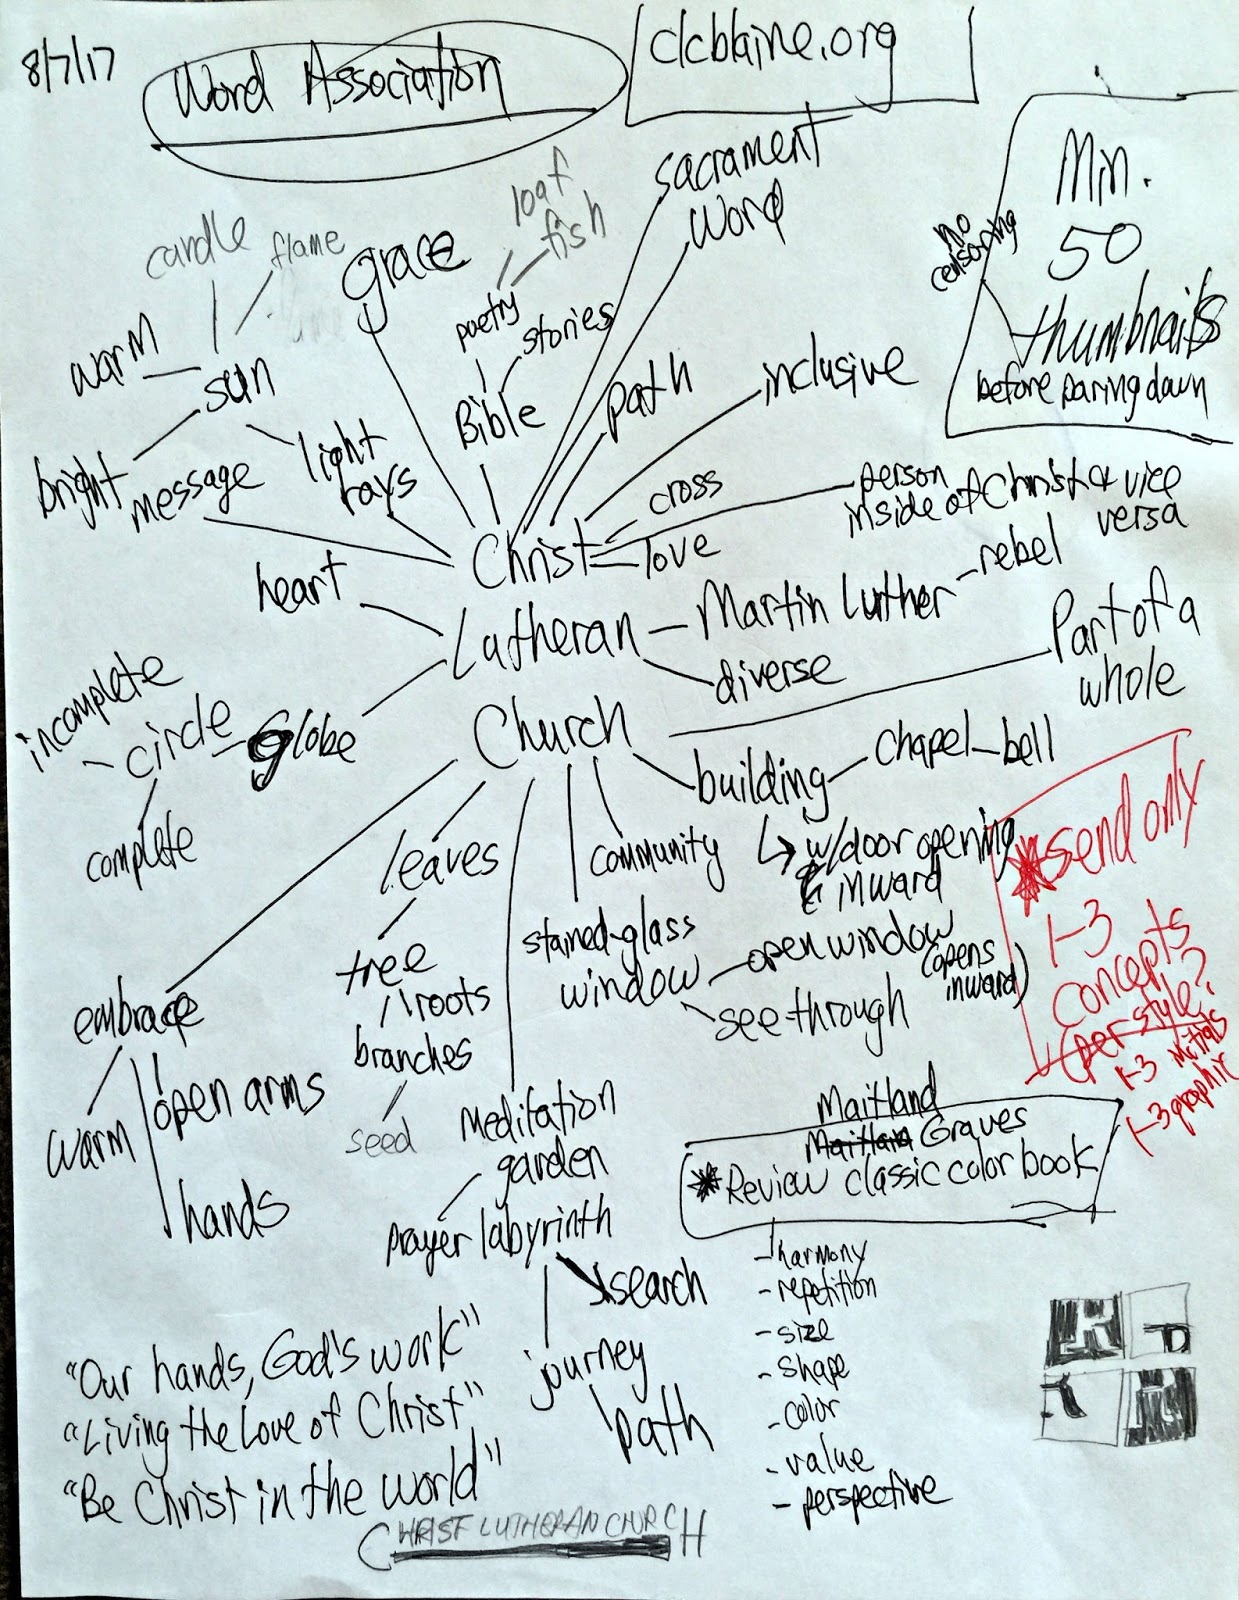 8/7/17
Word Association
clcblaine.org
Min.
50
thumbnails
before paring down
no
censoring
sacrament
word
loaf
fish
poetry
stories
Bible
candle
flame
grace
warm
sun
bright
message
light
rays
path
inclusive
cross
person
inside of Christ & vice
versa
love
Christ
heart
Lutheran
Martin Luther
rebel
diverse
Part of a
whole
incomplete
circle
globe
complete
Church
building
chapel
bell
w/door opening
inward
leaves
community
stained-glass
window
open window
(opens
inward)
see-through
tree
roots
branches
seed
embrace
warm
open arms
hands
Meditation
garden
prayer labyrinth
search
journey
path
*send only
1-3
concepts
(per style?
1-3 initials
1-3 graphic
Maitland
Maitlan Graves
*Review classic color book
- harmony
- repetition
- size
- shape
- color
- value
- perspective
"Our hands, God's work"
"Living the Love of Christ"
"Be Christ in the world"
CHRIST LUTHERAN CHURCH